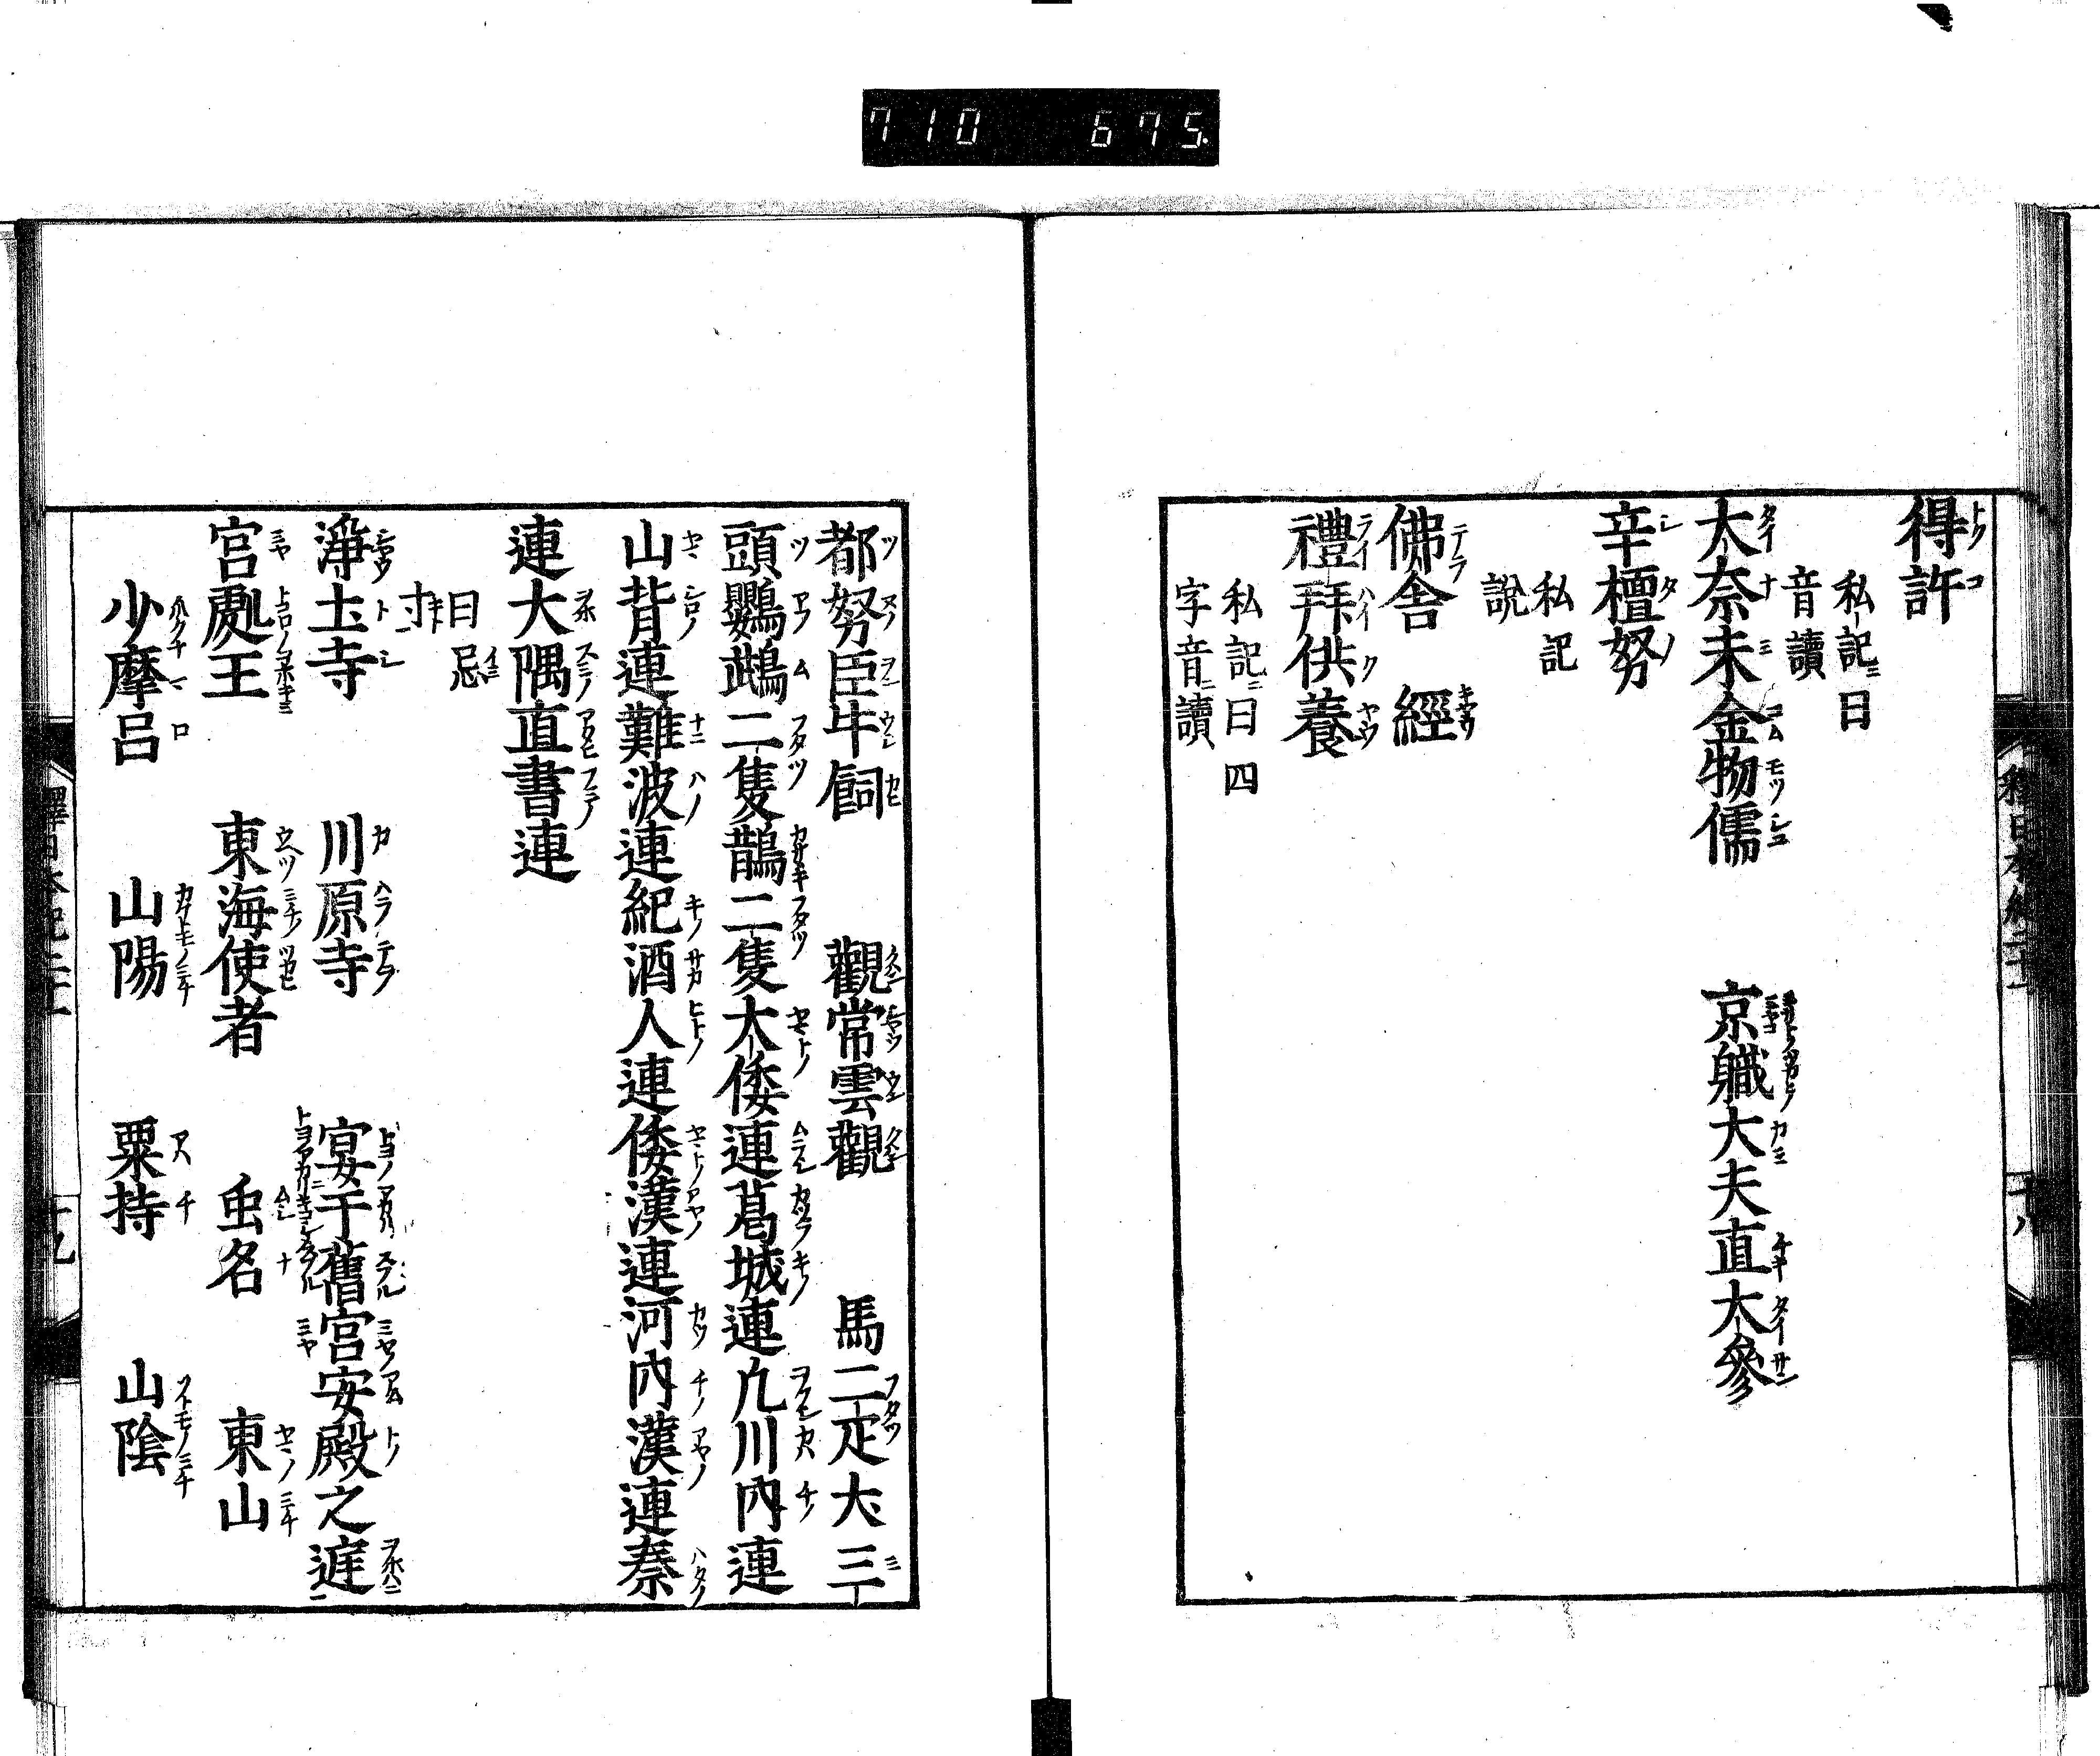 710 675
得許
私記ニ曰
音讀
大奈未金物儒 京職大夫直大參
辛檀努
私記
說
佛舎 經
禮拜供養
私記ニ曰四
字音ニ讀
都努臣牛飼 觀常雲觀 馬二疋犬三
頭鸚鵡二隻鵲二隻大倭連葛城連凢川內連
山背連難波連紀酒人連倭漢連河內漢連秦
連大隅直書連
曰忌
寸
淨土寺 川原寺 宴于舊宮安殿之庭
宮處王 東海使者 虫名 東山
少摩呂 山陽 粟持 山陰